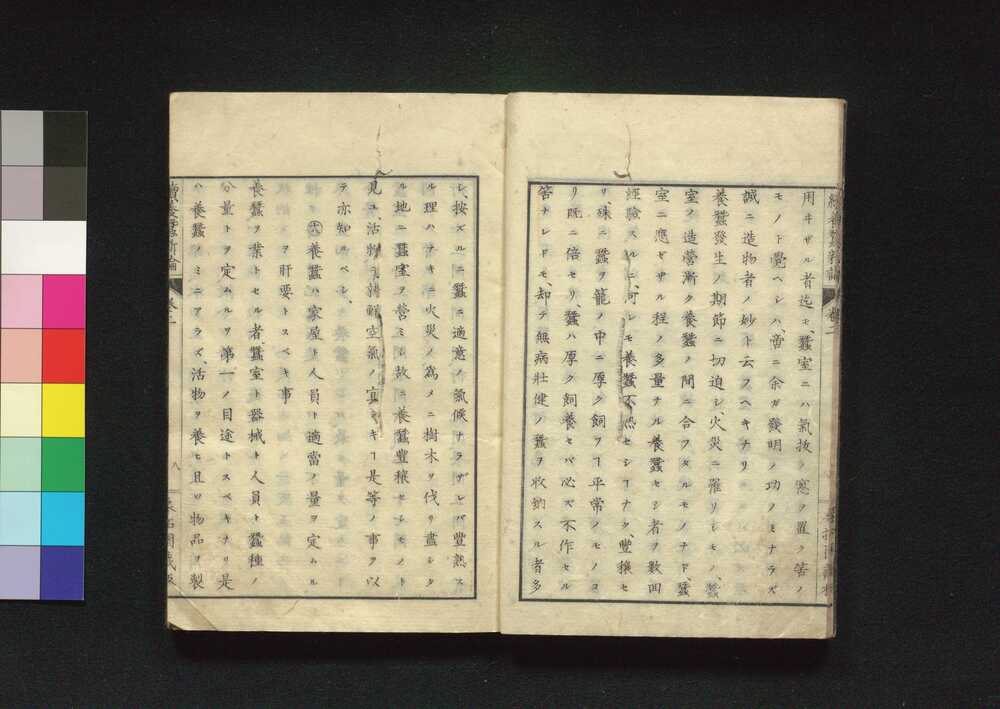 用ヰザル者迄モ、蚕室ニハ氣抜ノ窓ヲ置ク筈ノ
モノト覺ヘシハ、啻ニ余ガ發明ノ功ノミナラズ
誠ニ造物者ノ妙ト云フヘキナリ
養蚕發生ノ期節ニ切迫シ、火災ニ罹リシモノ、蚕
室ノ造營漸ク養蚕ノ間ニ合フタルモノナド、蚕
室ニ應ゼザル程ノ多量ナル養蚕セシ者ヲ數回
經驗スルニ、何レモ養蚕不熟セシヿナク、豐穣セ
リ、殊ニ蚕ヲ籠ノ中ニ厚ク飼フヿ平常ノモノヨ
リ既ニ倍セリ、蚕ハ厚ク飼養セバ必ズ不作セル
筈ナレドモ、却テ無病壯健ノ蚕ヲ收納スル者多
シ、按ズルニ蚕ニ適意ノ氣候ナラザレバ豐熟ス
ル理ハナキニ火災ノ爲メニ樹木ヲ伐リ盡シタ
ル地ニ蚕室ヲ營ミシ故ニ養蚕豐穣セシモノト
見ユ、活物ニ新鮮空氣ノ宜シキヿ是等ノ事ヲ以
テ亦知ルベシ、
㊅養蚕ハ家屋ト人員ト適當ノ量ヲ定ムル
ヲ肝要トスベキ事
養蚕ヲ業トセル者蚕室ト器械ト人員ト蚕種ノ
分量トヲ定ムルヲ第一ノ目途トスベキナリ是
ハ養蚕ノミニアラズ、活物ヲ養ヒ且ツ物品ヲ製
續養蚕新論
卷二
八